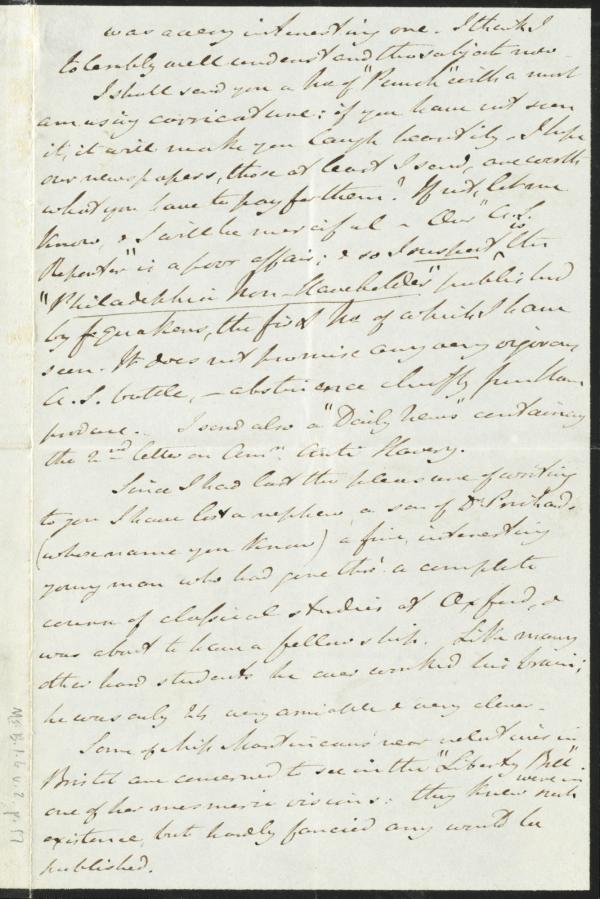 was a very interesting one. I think I
tolerably well understand the subject now.
I shall send you a No of "Punch" with a most
amusing carricature: if you have not seen
it, it will make you laugh heartily. I hope
our newspapers, those at least I send, are worth
what you have to pay for them? If not, let me
know, & I will be merciful. Our "A.S.
Reporter" is a poor affair; & so I suspect is the
"Philadelphia Non-Slaveholder" published
by Quakers, the first No of which I have
seen. It does not promise any very vigorous
A.S. battle, – abstinence chiefly
produce. I send also a "Daily News" containing
the 2nd letter on Amn Anti Slavery.
Since I had last the pleasure of writing
to you I have lost a nephew, a son of Dr Prichard,
(whose name you know) a fine, interesting
young man who had gone thro' a complete
course of classical studies at Oxford, &
was about to have a fellowship. Like many
other hard students he over worked his brain;
he was only 24, very amiable & very clever.
Some of Miss Martineau's near relatives in
Bristol are concerned to see in the "Liberty Bell"
one of her mesmeric visions: they knew such were in
existence, but hardly fancied any would be
published.
Ms.B.1.6 v.2, p.17